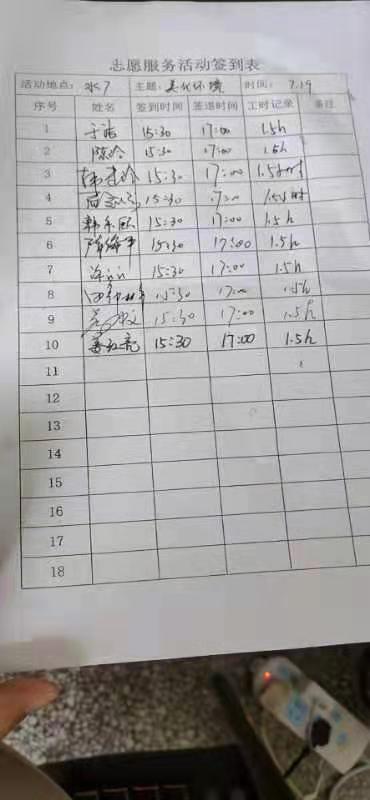 志愿服务活动签到表
活动地点: 水7 主题: 美化环境 时间: 7.19
序号 姓名 签到时间 签退时间 工时记录 备注
1 于浩 15:30 17:00 1.5h
2 陈玲 15:30 17:00 1.5h
3 15:30 17:00 1.5小时
4 15:30 17:00 1.5小时
5 15:30 17:00 1.5h
6 15:30 17:00 1.5h
7 15:30 17:00 1.5h
8 15:30 17:00 1.5h
9 15:30 17:00 1.5h
10 15:30 17:00 1.5h
11
12
13
14
15
16
17
18